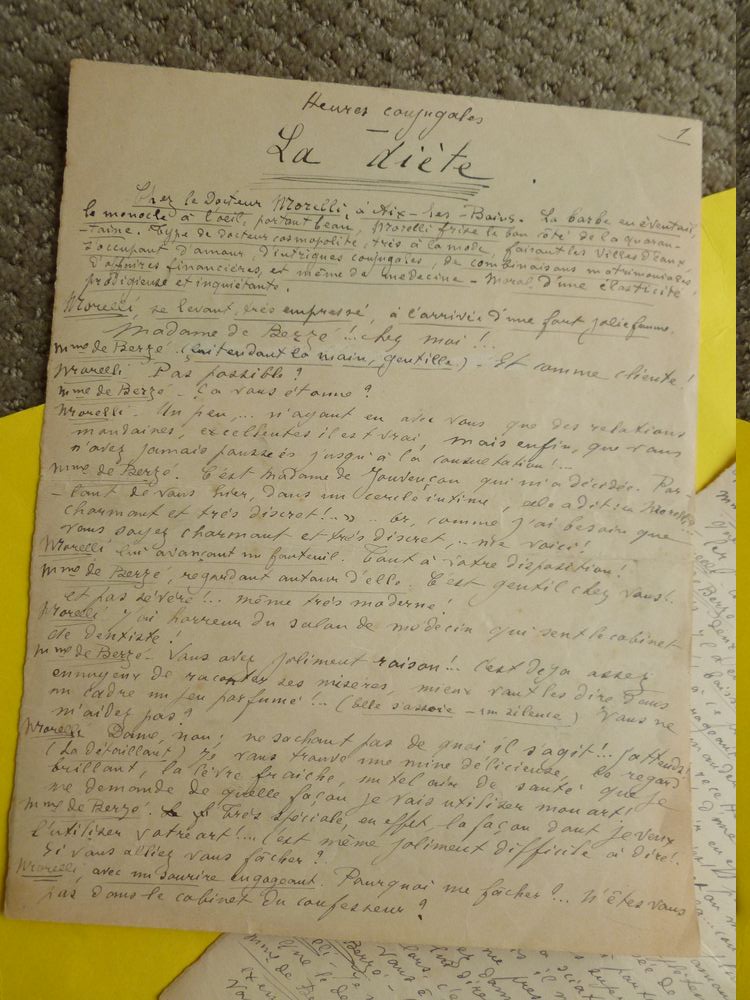 Heures conjugales
1
La diète
Chez le Docteur Morelli, à Aix-les-Bains. La barbe en éventail,
le monocle à l'oeil, portant beau, Morelli frise le bon côté de la quaran-
-taine. Type de docteur cosmopolite, très à la mode, faisant les Villes d'eaux,
s'occupant d'amour, d'intrigues conjugales, de combinaisons matrimoniales,
d'affaires financières, et même de médecine - Moral, d'une élasticité
prodigieuse et inquiétante.
Morelli, se levant, très empressé, à l'arrivée d'une fort jolie femme.
Madame de Berzé!.. chez moi!..
Mme de Berzé. (lui tendant la main, gentille.) - Et comme cliente!
Morelli Pas possible?
Mme de Berzé - Ça vous étonne?
Morelli - Un peu,... n'ayant eu avec vous que des relations
mondaines, excellentes il est vrai, mais enfin, que vous
n'avez jamais poussées jusqu'à la consultation!...
Mme de Berzé. C'est Madame de Jouvençon qui m'a décidée. Par-
-lant de vous hier, dans un cercle intime, elle a dit "Morelli...
charmant et très discret!.. » .. Or, comme j'ai besoin que
vous soyez charmant et très discret,.. me voici!
Morelli lui avançant un fauteuil. Tout à votre disposition!
Mme de Berzé, regardant autour d'elle. C'est gentil chez vous!..
et pas sévère!.. même très moderne!
Morelli J'ai horreur du salon de médecin qui sent le cabinet
de dentiste!
Mme de Berzé - Vous avez joliment raison!.. C'est déjà assez
ennuyeux de raconter ses misères, mieux vaut les dire dans
un cadre un peu parfumé!.. (Elle s'assoie - un silence) Vous ne
m'aidez pas?
Morelli Dame, non; ne sachant pas de quoi il s'agit!.. J'attends!
(La détaillant) Je vous trouve une mine délicieuse, le regard
brillant, la lèvre fraîche, un tel air de santé que je
me demande de quelle façon je vais utiliser mon art!
Mme de Berzé. Très spéciale, en effet la façon dont je veux
l'utiliser votre art!... C'est même joliment difficile à dire!..
Si vous alliez vous fâcher?
Morelli, avec un sourire engageant. Pourquoi me fâcher?.. N'êtes vous
pas dans le cabinet du confesseur?